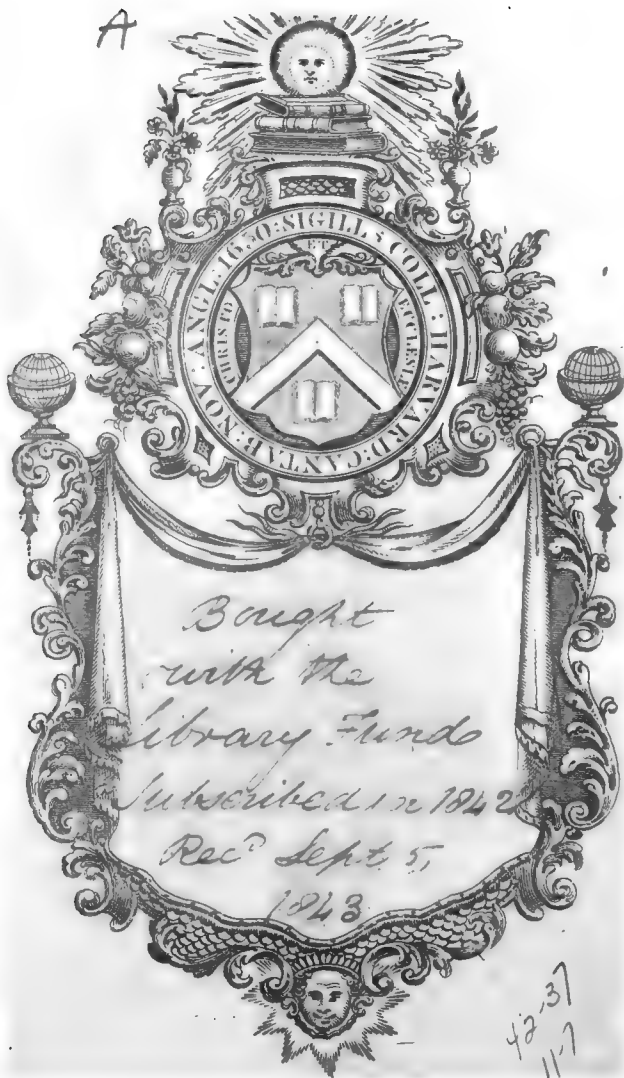 A
SIGILL : COLL : HARVARD : CANTAB : NOV : ANGL : 1650 :
ET
CHRISTO
ECCLESIÆ
Bought
with the
Library Fund
Subscribed in 1842
Rec^d Sept 5,
1843
42-37
11-7